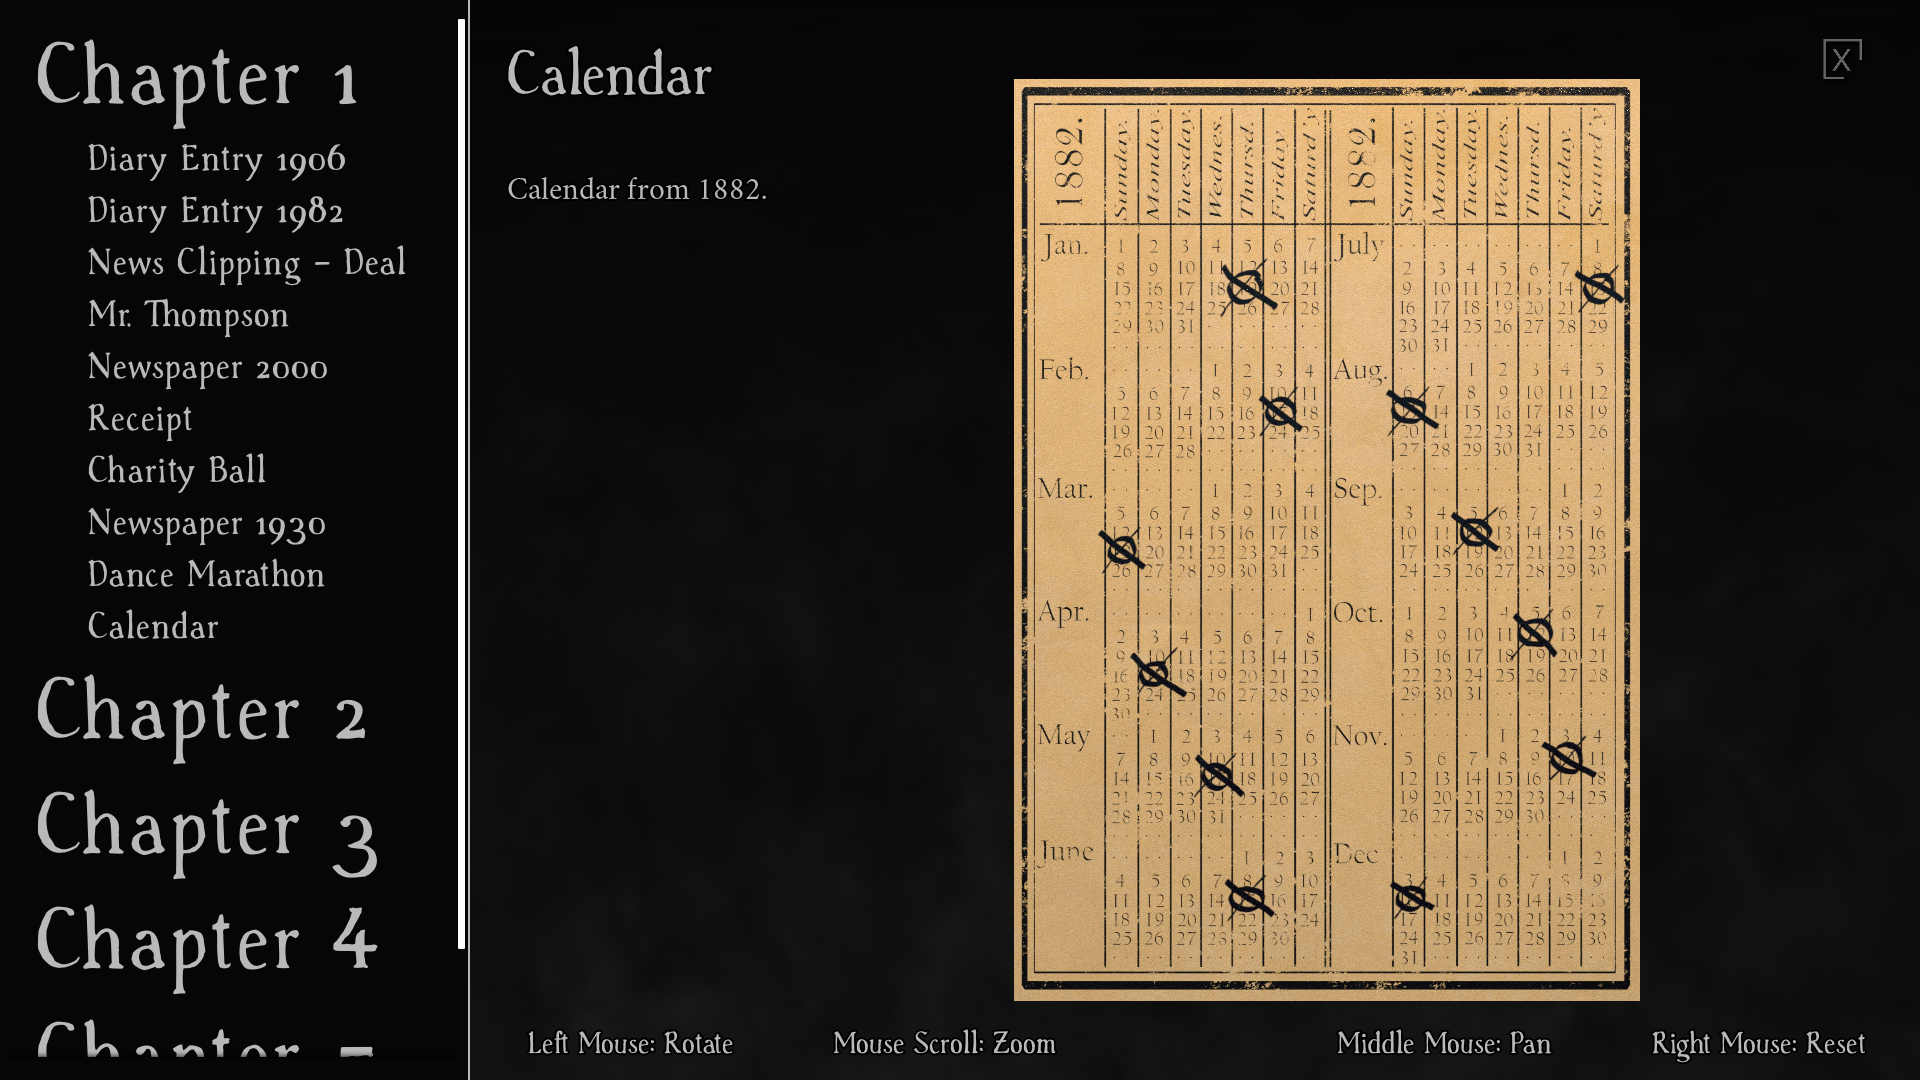 Chapter 1
Diary Entry 1906
Diary Entry 1982
News Clipping - Deal
Mr. Thompson
Newspaper 2000
Receipt
Charity Ball
Newspaper 1930
Dance Marathon
Calendar
Chapter 2
Chapter 3
Chapter 4
Chapter
Calendar
X
Calendar from 1882.
1882. Sunday. Monday. Tuesday. Wednes. Thursd. Friday. Saturd'y
Jan. 1 2 3 4 5 6 7
8 9 10 11 12 13 14
15 16 17 18 20 21
22 23 24 25 26 27 28
29 30 31
Feb. 1 2 3 4
5 6 7 8 9 10 11
12 13 14 15 16 18
19 20 21 22 23 24 25
26 27 28
Mar. 1 2 3 4
5 6 7 8 9 10 11
12 13 14 15 16 17 18
20 21 22 23 24 25
26 27 28 29 30 31
Apr. 1
2 3 4 5 6 7 8
9 10 11 12 13 14 15
16 18 19 20 21 22
23 24 25 26 27 28 29
30
May 1 2 3 4 5 6
7 8 9 10 11 12 13
14 15 16 18 19 20
21 22 23 24 25 26 27
28 29 30 31
June 1 2 3
4 5 6 7 8 9 10
11 12 13 14 16 17
18 19 20 21 22 23 24
25 26 27 28 29 30
1882. Sunday. Monday. Tuesday. Wednes. Thursd. Friday. Saturd'y
July 1
2 3 4 5 6 7 8
9 10 11 12 13 14
16 17 18 19 20 21 22
23 24 25 26 27 28 29
30 31
Aug. 1 2 3 4 5
6 7 8 9 10 11 12
14 15 16 17 18 19
20 21 22 23 24 25 26
27 28 29 30 31
Sep. 1 2
3 4 5 6 7 8 9
10 11 13 14 15 16
17 18 19 20 21 22 23
24 25 26 27 28 29 30
Oct. 1 2 3 4 5 6 7
8 9 10 11 13 14
15 16 17 18 19 20 21
22 23 24 25 26 27 28
29 30 31
Nov. 1 2 3 4
5 6 7 8 9 11
12 13 14 15 16 17 18
19 20 21 22 23 24 25
26 27 28 29 30
Dec 1 2
3 4 5 6 7 8 9
11 12 13 14 15 16
17 18 19 20 21 22 23
24 25 26 27 28 29 30
31
Left Mouse: Rotate
Mouse Scroll: Zoom
Middle Mouse: Pan
Right Mouse: Reset